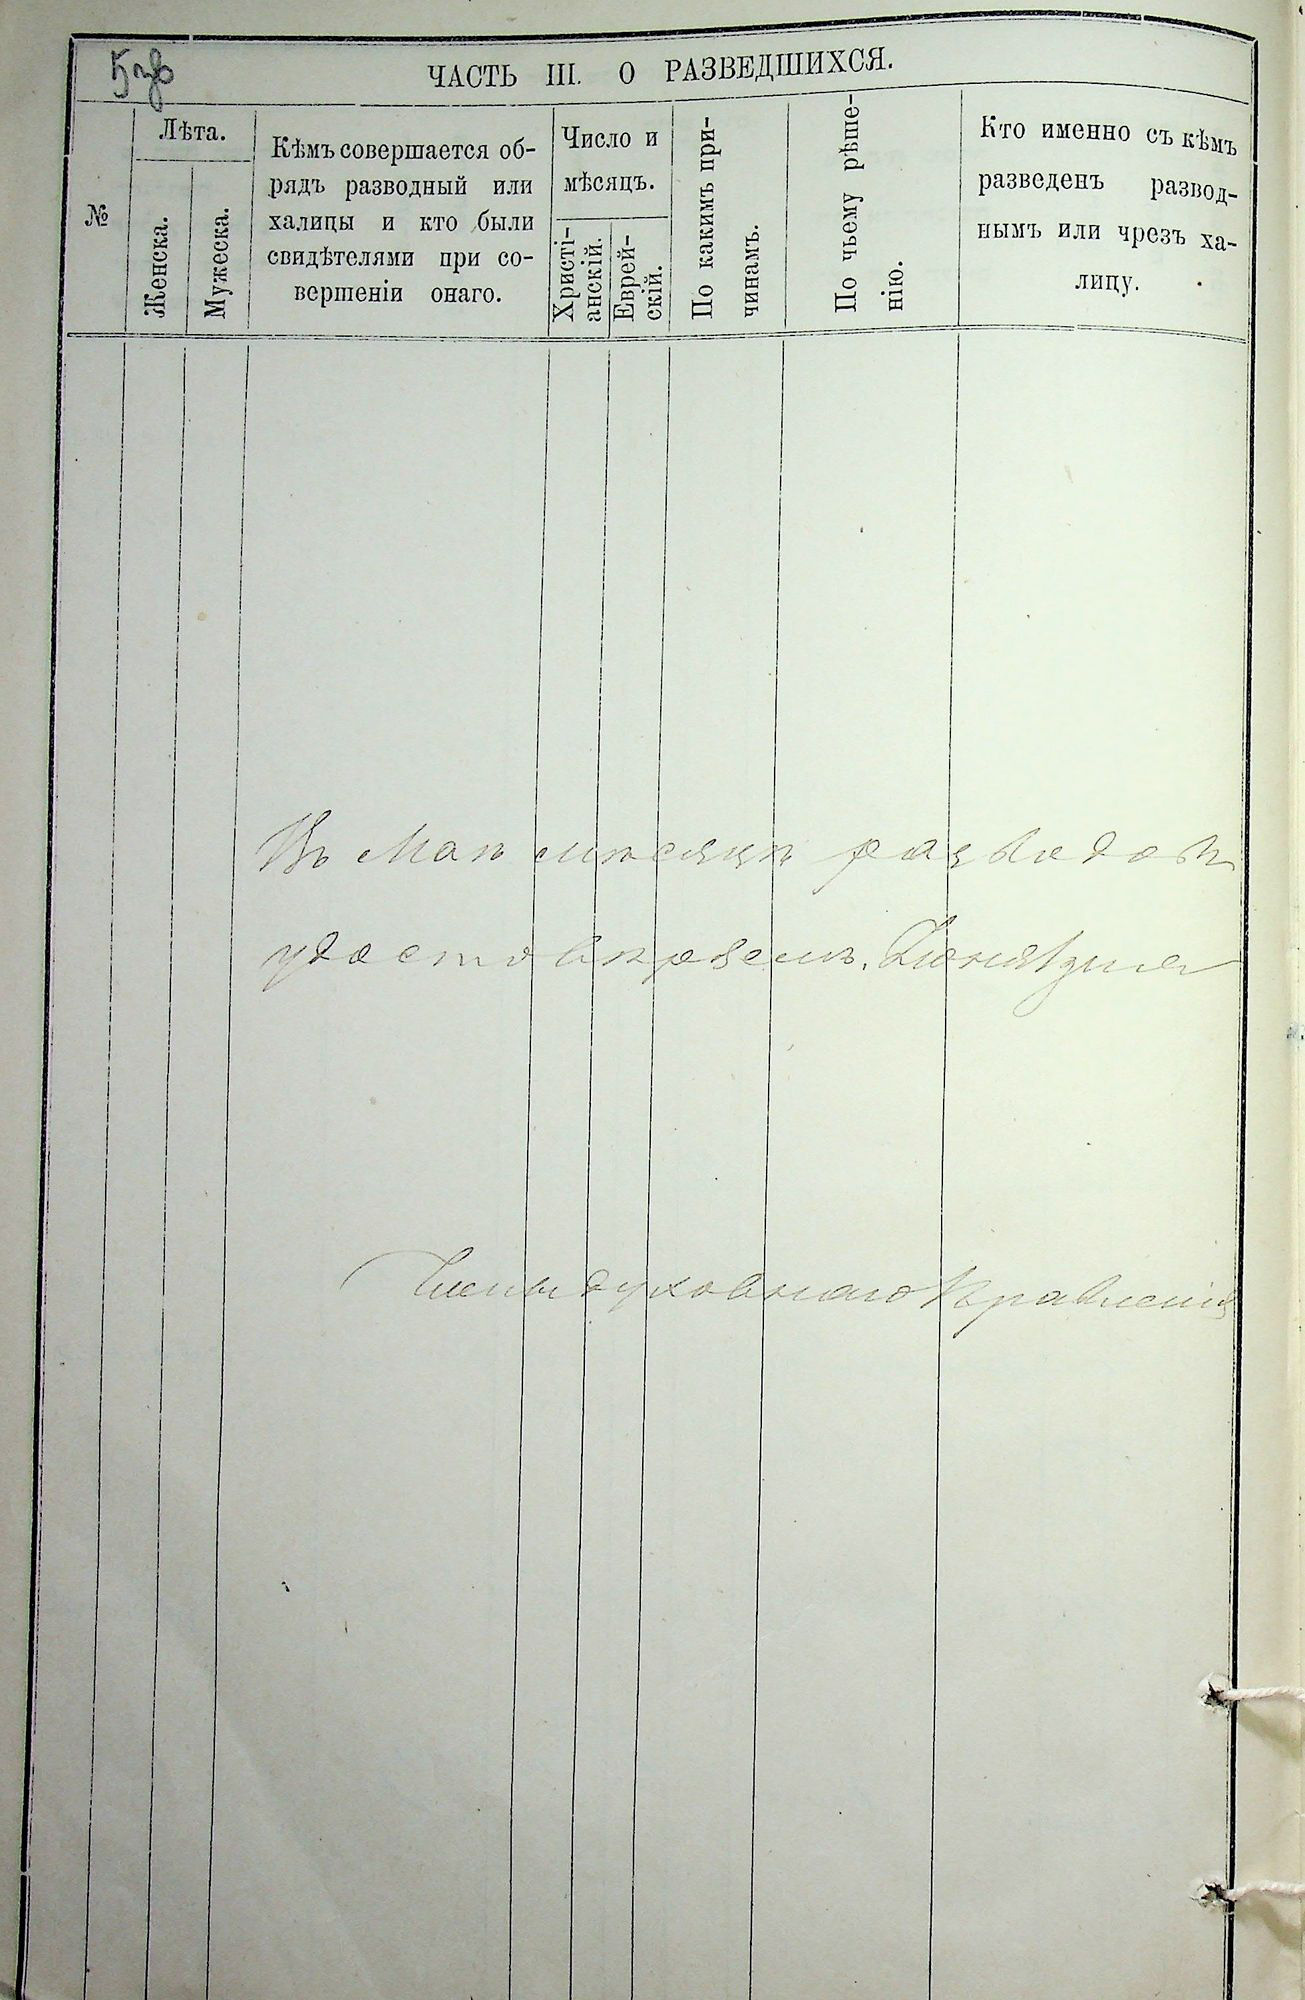 ЧАСТЬ III. О РАЗВЕДШИХСЯ.
№
Лѣта.
Женска.
Мужеска.
Кѣмъ совершается об-
рядъ разводный или
халицы и кто были
свидѣтелями при со-
вершеніи онаго.
Число и
мѣсяцъ.
Христі-
анскій.
Еврей-
скій.
По какимъ при-
чинамъ.
По чьему рѣше-
нію.
Кто именно съ кѣмъ
разведенъ развод-
нымъ или чрезъ ха-
лицу.
Въ Маѣ мѣсяцѣ разводовъ
удостовѣряемъ.
Члены духовнаго Правленія